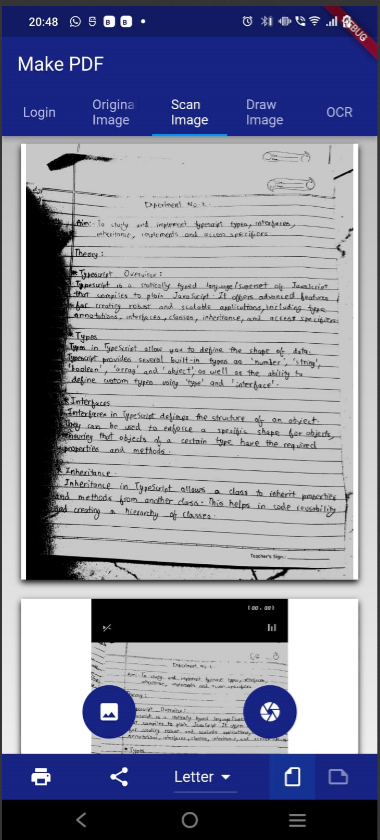 20:48
DEBUG
Make PDF
Login
Original Image
Scan Image
Draw Image
OCR
Experiment No-2.
Aim:- To study and implement typescript types, interfaces,
inheritance, implements and access specifiers.
Theory:
* Typescript Overview:
Typescript is a statically typed language/superset of JavaScript
that compiles to plain JavaScript. It offers advanced features
for creating robust and scalable applications, including type
annotations, interfaces, classes, inheritance, and access specifiers.
* Types
Types in TypeScript allow you to define the shape of data.
Typescript provides several built-in types as 'number', 'string',
'boolean', 'array' and 'object', as well as the ability to
define custom types using 'type' and 'interface'.
* Interfaces
Interfaces in TypeScript defines the structure of an object.
They can be used to enforce a specific shape for objects,
ensuring that objects of a certain type have the required
properties and methods.
* Inheritance
Inheritance in TypeScript allows a class to inherit properties
and methods from another class. This helps in code reusability
and creating a hierarchy of classes.
Teacher's Sign.:
Experiment No-2.
To study and implement typescript types, interfaces,
inheritance, implements and access specifiers
Theory:
Typescript Overview:
Letter